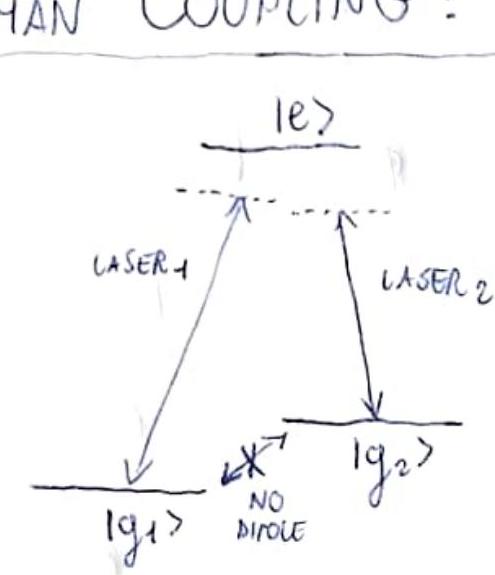 MAN COUPLING:
|e>
LASER 1
LASER 2
|g₂>
NO
DIPOLE
|g₁>